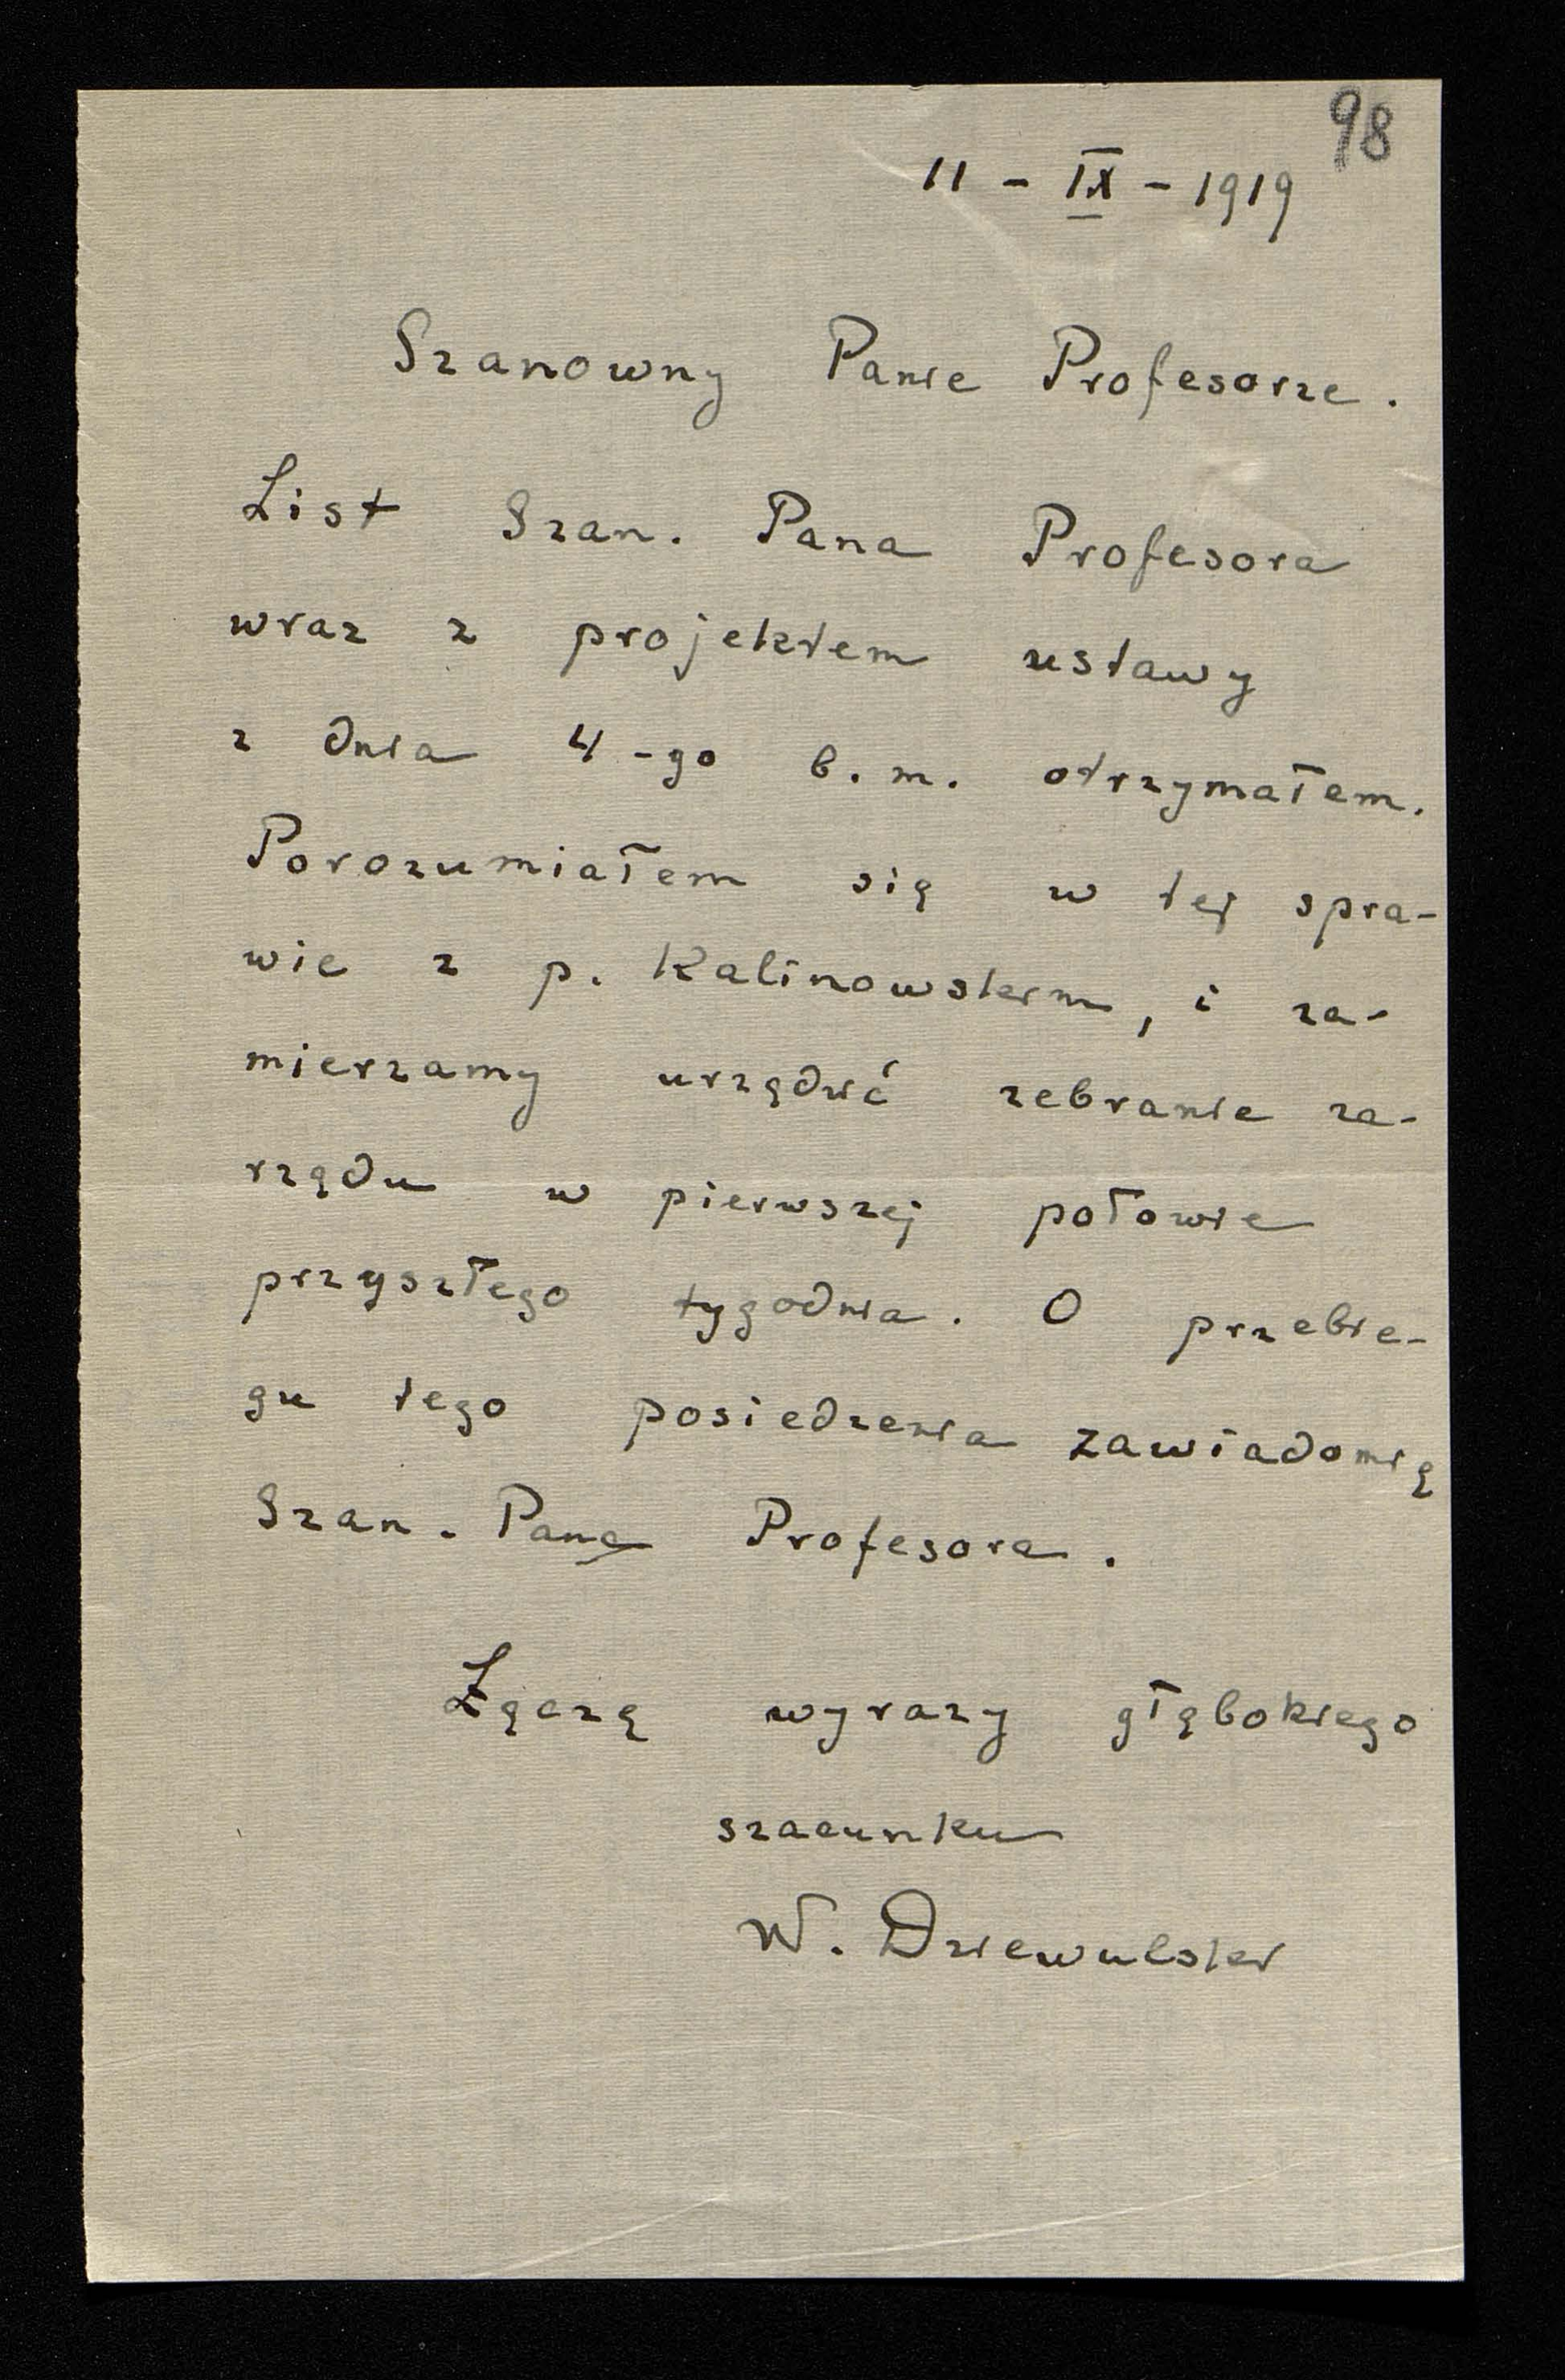 98
11 - IX - 1919
Szanowny Panie Profesorze.
List Szan. Pana Profesora
wraz z projektem ustawy
z dnia 4-go b. m. otrzymałem.
Porozumiałem się w tej spra-
wie z p. Kalinowskim, i za-
mierzamy urządzić zebranie za-
rządu w pierwszej połowie
przyszłego tygodnia. O przebie-
gu tego posiedzenia zawiadomię
Szan. Pana Profesora.
Łączę wyrazy głębokiego
szacunku
W. Dziewulski